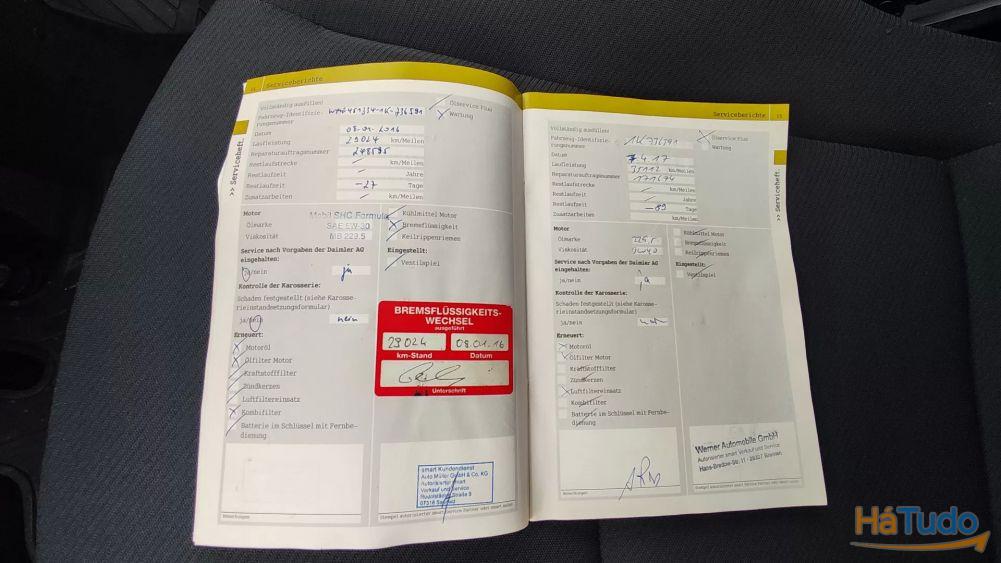 14 Serviceberichte
Vollständig ausfüllen!
Fahrzeug-Identifizie-
rungsnummer
Ölservice Plus
Wartung
Datum 08.01.2016
Laufleistung 29024 km/Meilen
Reparaturauftragsnummer 248595
Restlaufstrecke / km/Meilen
Restlaufzeit / Jahre
Restlaufzeit -27 Tage
Zusatzarbeiten / km/Meilen
>> Serviceheft.
Motor Mobil SHC Formula
Ölmarke SAE 5W-30
Viskosität MB 229.5
Service nach Vorgaben der Daimler AG
eingehalten:
ja/nein ja
Kontrolle der Karosserie:
Schaden festgestellt (siehe Karosse-
rieinstandsetzungsformular)
ja/nein nein
Erneuert:
Motoröl
Ölfilter Motor
Kraftstofffilter
Zündkerzen
Luftfiltereinsatz
Kombifilter
Batterie im Schlüssel mit Fernbe-
dienung
Kühlmittel Motor
Bremsflüssigkeit
Keilrippenriemen
Eingestellt:
Ventilspiel
BREMSFLÜSSIGKEITS-
WECHSEL
ausgeführt
29024 08.01.16
km-Stand Datum
Unterschrift
smart Kundendienst
Auto Müller GmbH & Co. KG
Autorisierter smart
Verkauf und Service
07318 Saalfeld
Bemerkungen
Stempel autorisierter smart Service Partner oder smart center
Serviceberichte 15
Vollständig ausfüllen!
Fahrzeug-Identifizie-
rungsnummer 1K736591
Ölservice Plus
Wartung
Datum 7.4.17
Laufleistung 35112 km/Meilen
Reparaturauftragsnummer 171674
Restlaufstrecke / km/Meilen
Restlaufzeit / Jahre
Restlaufzeit -89 Tage
Zusatzarbeiten km/Meilen
>> Serviceheft.
Motor
Ölmarke 229.5
Viskosität
Service nach Vorgaben der Daimler AG
eingehalten:
ja/nein ja
Kontrolle der Karosserie:
Schaden festgestellt (siehe Karosse-
rieinstandsetzungsformular)
ja/nein
Erneuert:
Motoröl
Ölfilter Motor
Kraftstofffilter
Zündkerzen
Luftfiltereinsatz
Kombifilter
Batterie im Schlüssel mit Fernbe-
dienung
Kühlmittel Motor
Bremsflüssigkeit
Keilrippenriemen
Eingestellt:
Ventilspiel
Werner Automobile GmbH
Autorisierter smart Verkauf und Service
Hans-Bredow-Str. 11 - 28307 Bremen
Bemerkungen
Stempel autorisierter smart Service Partner oder smart center
HáTudo